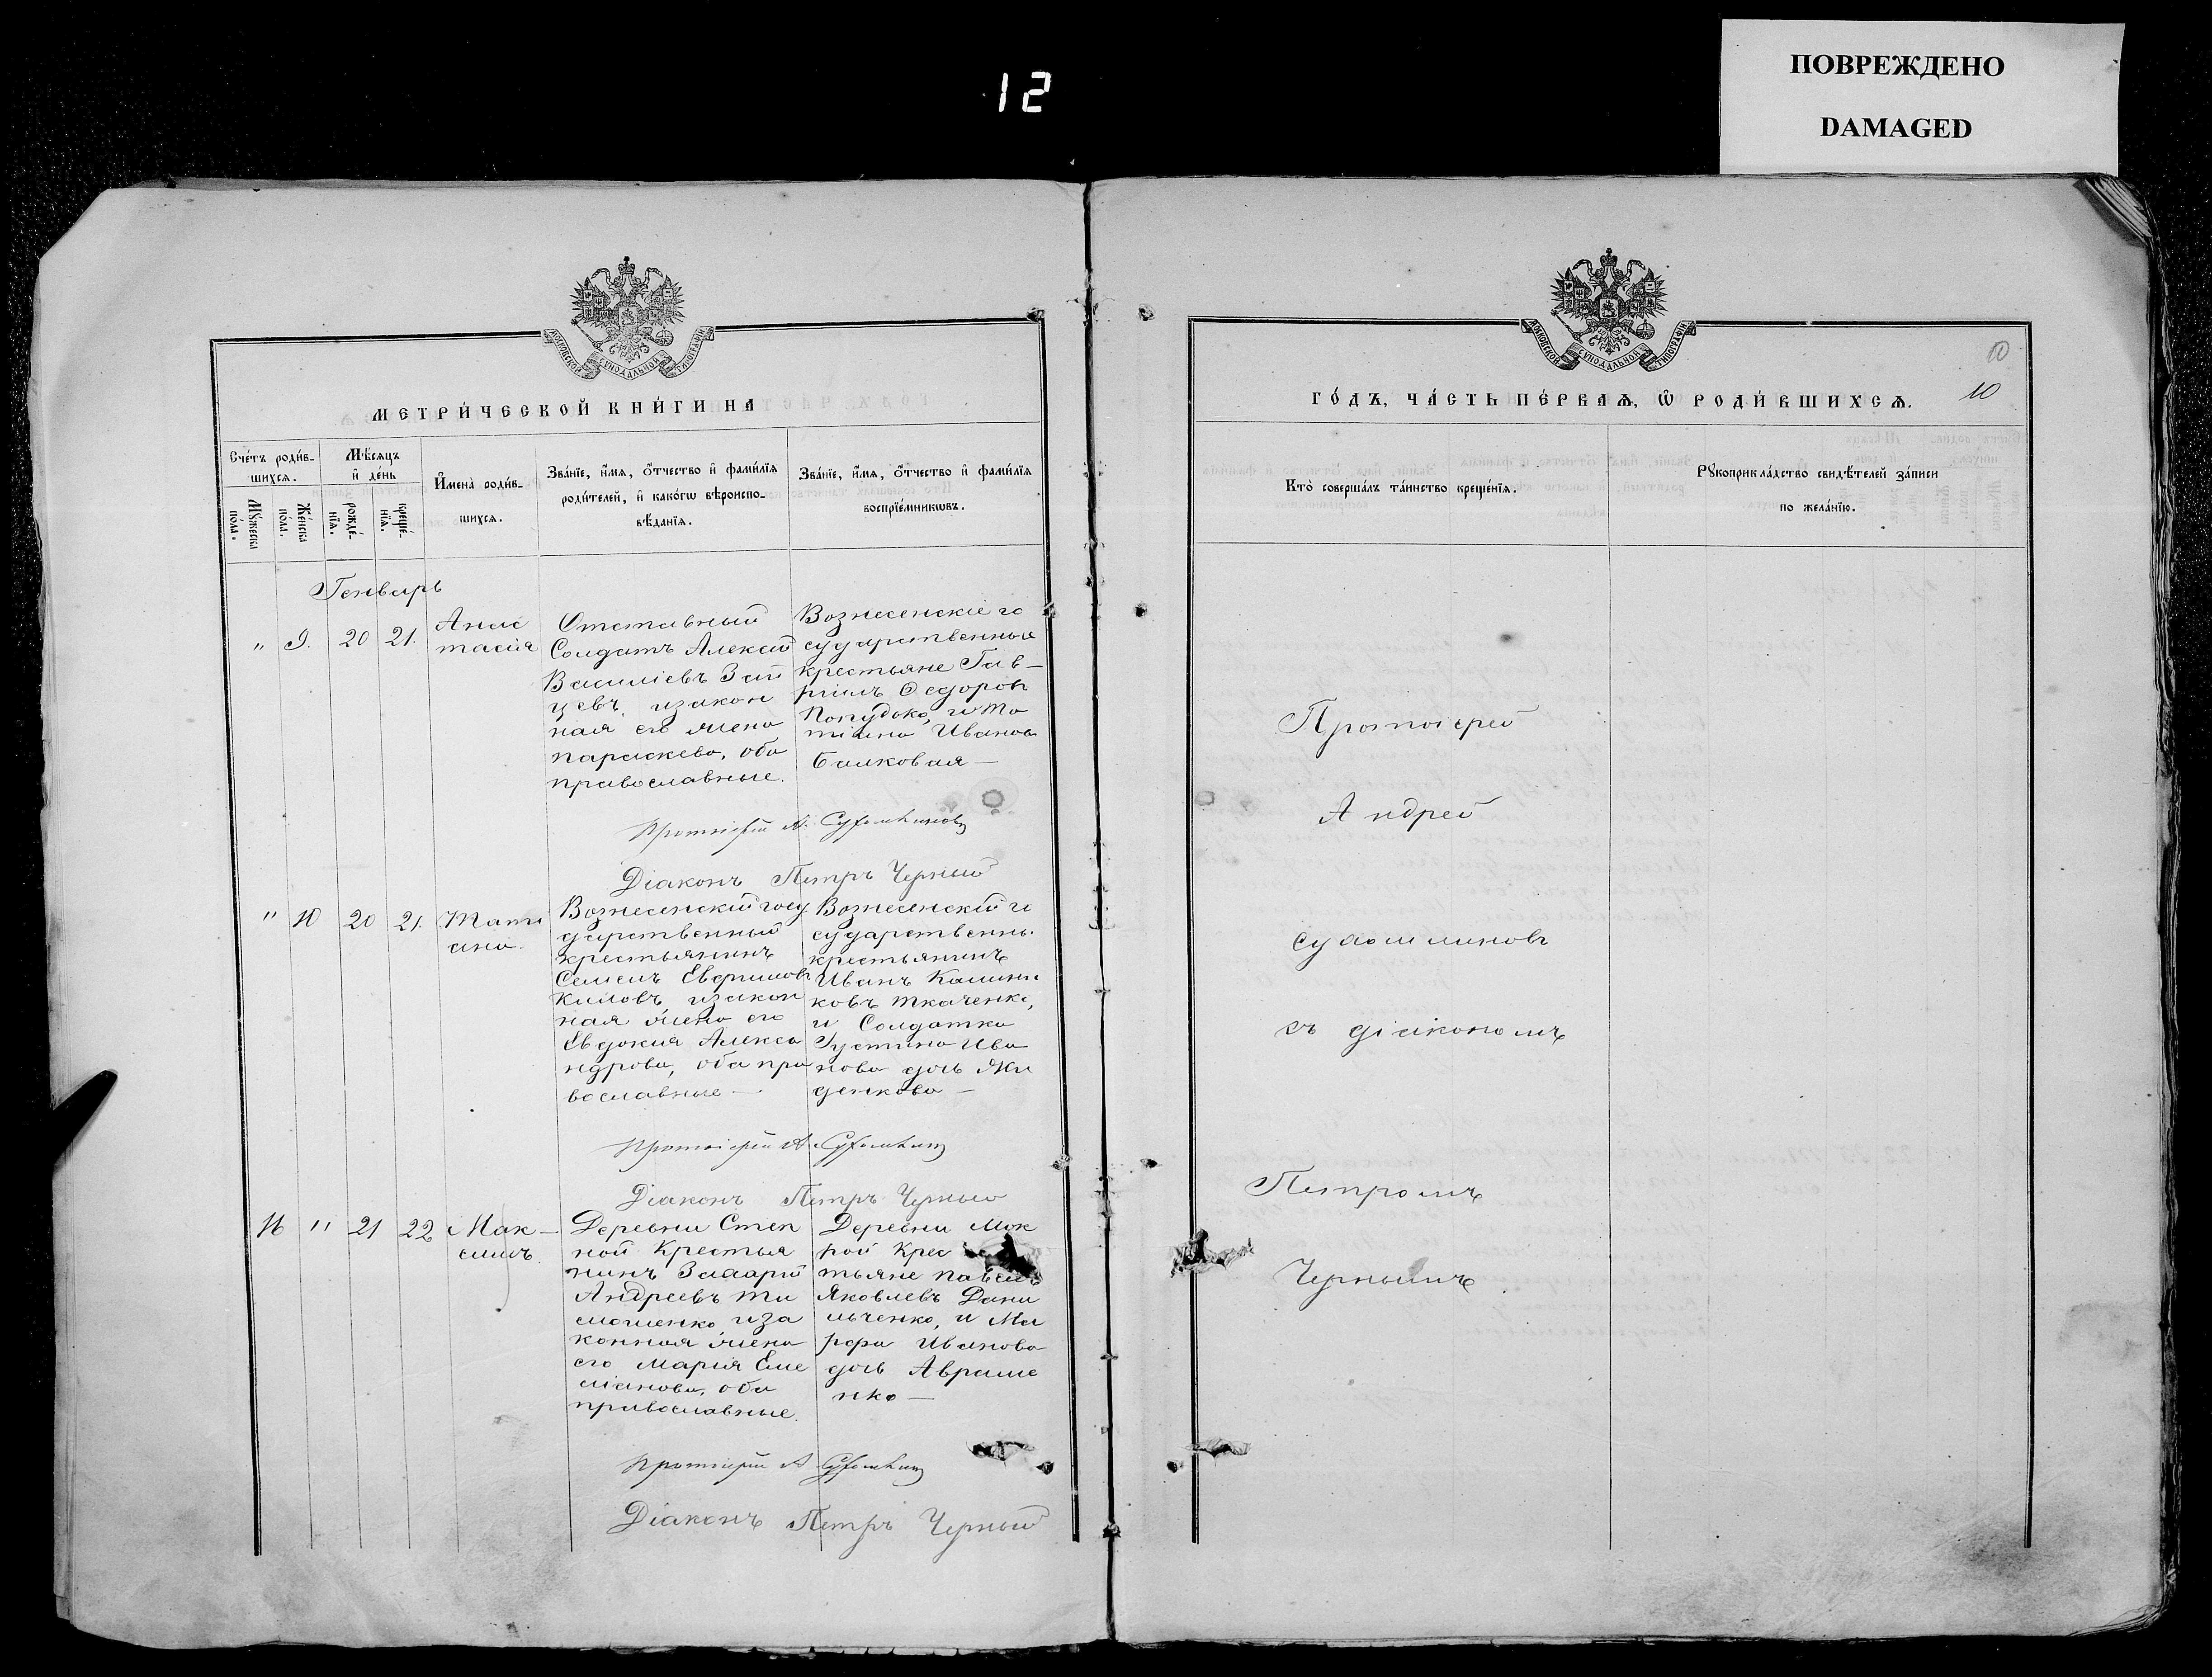 12
ПОВРЕЖДЕНО
DAMAGED
МОСКОВСКОЙ СУНОДАЛЬНОЙ ТИПОГРАФІИ
МЕТРИ́ЧЕСКОЙ КНИ́ГИ НА
Сче́тъ роди́в-
шихсѧ.
Мѣ́сѧцъ
и҆ де́нь
Мꙋ́жеска
по́ла.
Же́нска
по́ла.
рожде́-
нїѧ.
креще́-
нїѧ.
И҆мена̀ роди́в-
шихсѧ.
Зва́нїе, и҆́мѧ, ѻ҆́тчество и҆ фами́лїѧ
роди́телей, и҆ како́гѡ вѣроиспо-
вѣ́данїѧ.
Зва́нїе, и҆́мѧ, ѻ҆́тчество и҆ фами́лїѧ
воспрїе́мникѡвъ.
Генварь
" 9. 20 21.
Анас
тасія
Отставный
Солдатъ Алексій
Василіевъ Зай
цевъ, изакон
ная его жена
параскева, оба
православные.
Вознесенскіе го
сударственные
крестьяне Гав-
ріилъ Ѳедоровъ
и Та
тіана Иванов
Балковая —
Протоіерей А. Сухомлиновъ
Діаконъ Петръ Черный
" 10 20 21.
Тати
ана.
Вознесенскій госу
дарственный
крестьянинъ
Климовъ изакон
ная жена его
Евдокия Алекса
ндрова, оба пра
вославные —
Вознесенскій го
сударственны.
крестьянинъ
Иванъ
ковъ ткаченко,
и Солдатка
Густина Ива
нова дочь
денкова —
Протоіерей А. Сухомлин
Діаконъ Петръ Черный
11 " 21 22
Мак-
симъ.
Деревни Степ
ной Крестья
нинъ
Андреевъ Ти
мошенко иза
конная жена
его Марія Еме
ліанова, оба
православные.
Деревни Мок
рой Крес
тьяне Павелъ
Яковлевъ Дани
льченко, и Ма
рфа Иванова
дочь Авраме
нко —
Протоіерей А. Сухомлин
Діаконъ Петръ Черный
МОСКОВСКОЙ СУНОДАЛЬНОЙ ТИПОГРАФІИ
10
10
ГО́ДЪ, ЧА́СТЬ ПЕ́РВАѦ, Ѡ҆ РОДИ́ВШИХСѦ.
Кто̀ соверша́лъ та́инство креще́нїѧ.
Рꙋкоприкла́дство свидѣ́телей за́писи
по жела́нїю.
Протоіерей
Андрей
Сухомлиновъ
съ діакономъ
Петромъ
Чернымъ